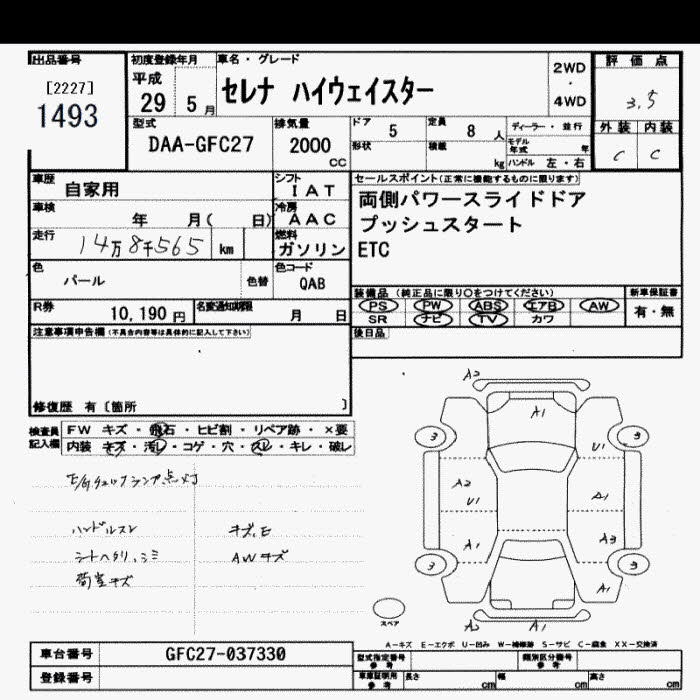 出品番号
[2227]
1493
初度登録年月
平成
29 5 月
車名・グレード
セレナ ハイウェイスター
2WD
・
4WD
評価点
3.5
外装 内装
C C
型式
DAA-GFC27
排気量
2000
CC
ドア 5
定員 8 人
形状
積載 kg
ディーラー・並行
モデル年式 年
ハンドル 左・右
車歴 自家用
シフト
IAT
車検 年 月( 日)
冷房
AAC
走行 14万8千565 km
燃料
ガソリン
色 パール
色替
色コード
QAB
R券 10,190 円
名変通知期限 月 日
セールスポイント(正常に機能するものに限ります)
両側パワースライドドア
プッシュスタート
ETC
装備品 (純正品に限り○をつけてください)
新車保証書
PS PW ABS エアB AW
有・無
SR ナビ TV カワ
後日品
注意事項申告欄(不具合内容等は具体的に記入して下さい)
修復歴 有〔箇所 〕
検査員
記入欄
FW キズ・飛石・ヒビ割・リペア跡・×要
内装・キズ・汚レ・コゲ・穴・スレ・キレ・破レ
E/Gチェックランプ点灯
ハンドルスレ
キズ、E
シートヘタリ、シミ
AWキズ
荷室キズ
A2
A1
3 3
U1
A2
U1
A1
A1
A3
3 3
A1
A2 A1
スペア
A-キズ E-エクボ U-凹み W-補修跡 S-サビ C-腐食 XX-交換済
車台番号 GFC27-037330
登録番号
型式指定番号
参考
類別区分番号
参考
車庫証明用
参考
長さ cm
幅 cm
高さ cm